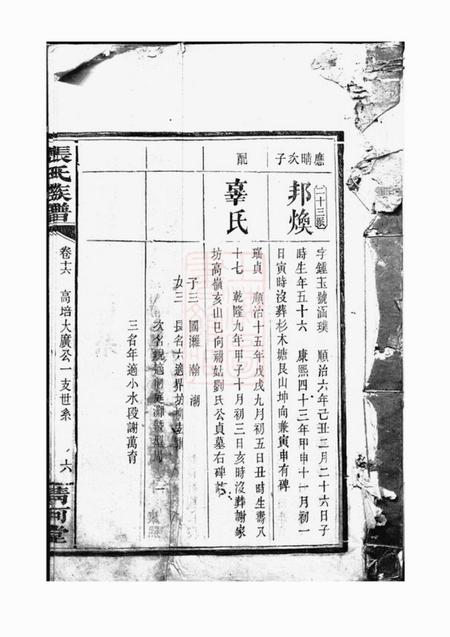 應晴次子
邦煥
二十三派
字鍾玉號涵璞 順治六年己丑二月二十六日子
時生年五十六 康熙四十三年甲申十一月初一
日寅時沒葬杉木塘艮山坤向兼寅申有碑
配
辜氏
瑤貞 順治十五年戊戌九月初五日丑時生壽八
十七 乾隆九年甲子十月初三日亥時沒葬謝家
坊高嶺亥山巳向祔姑劉氏公貞墓右碑
子三 國灘 瀚 湖
女三 長名六適界
次名親適
三名年適小水段謝萬育
張氏族譜
卷十六 高培大廣公一支世系
六
清河堂